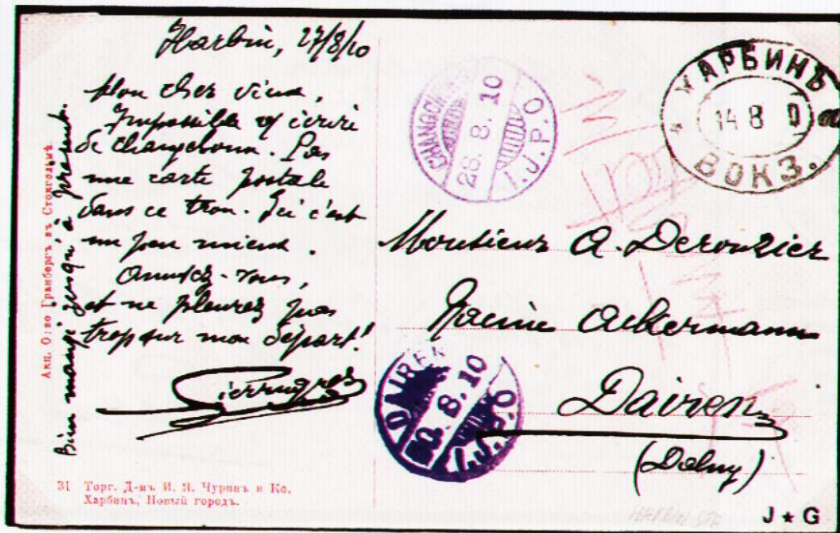 Harbin, 27/8/10
Mon cher vieux,
Impossible d'écrire
de Changchoun. Pas
une carte postale
dans ce trou. Ici c'est
un peu mieux.
Amusez-vous,
et ne pleurez pas
trop sur mon départ!
Bien mangé jusqu'à présent.
Акц. О-во Гранбергъ въ Стокгольмѣ.
31 Торг. Д-мъ И. Я. Чуринъ и Ко.
Харбинъ, Новый городъ.
CHANGCHUN
28.8.10
I.J.P.O
ХАРБИНЪ
14 8 10
ВОКЗ.
Monsieur A. Derouzier
Racine Ackermann
Dairen
(Dalny)
DAIREN
30.8.10
I.J.P.O
HARBIN STE
J★G